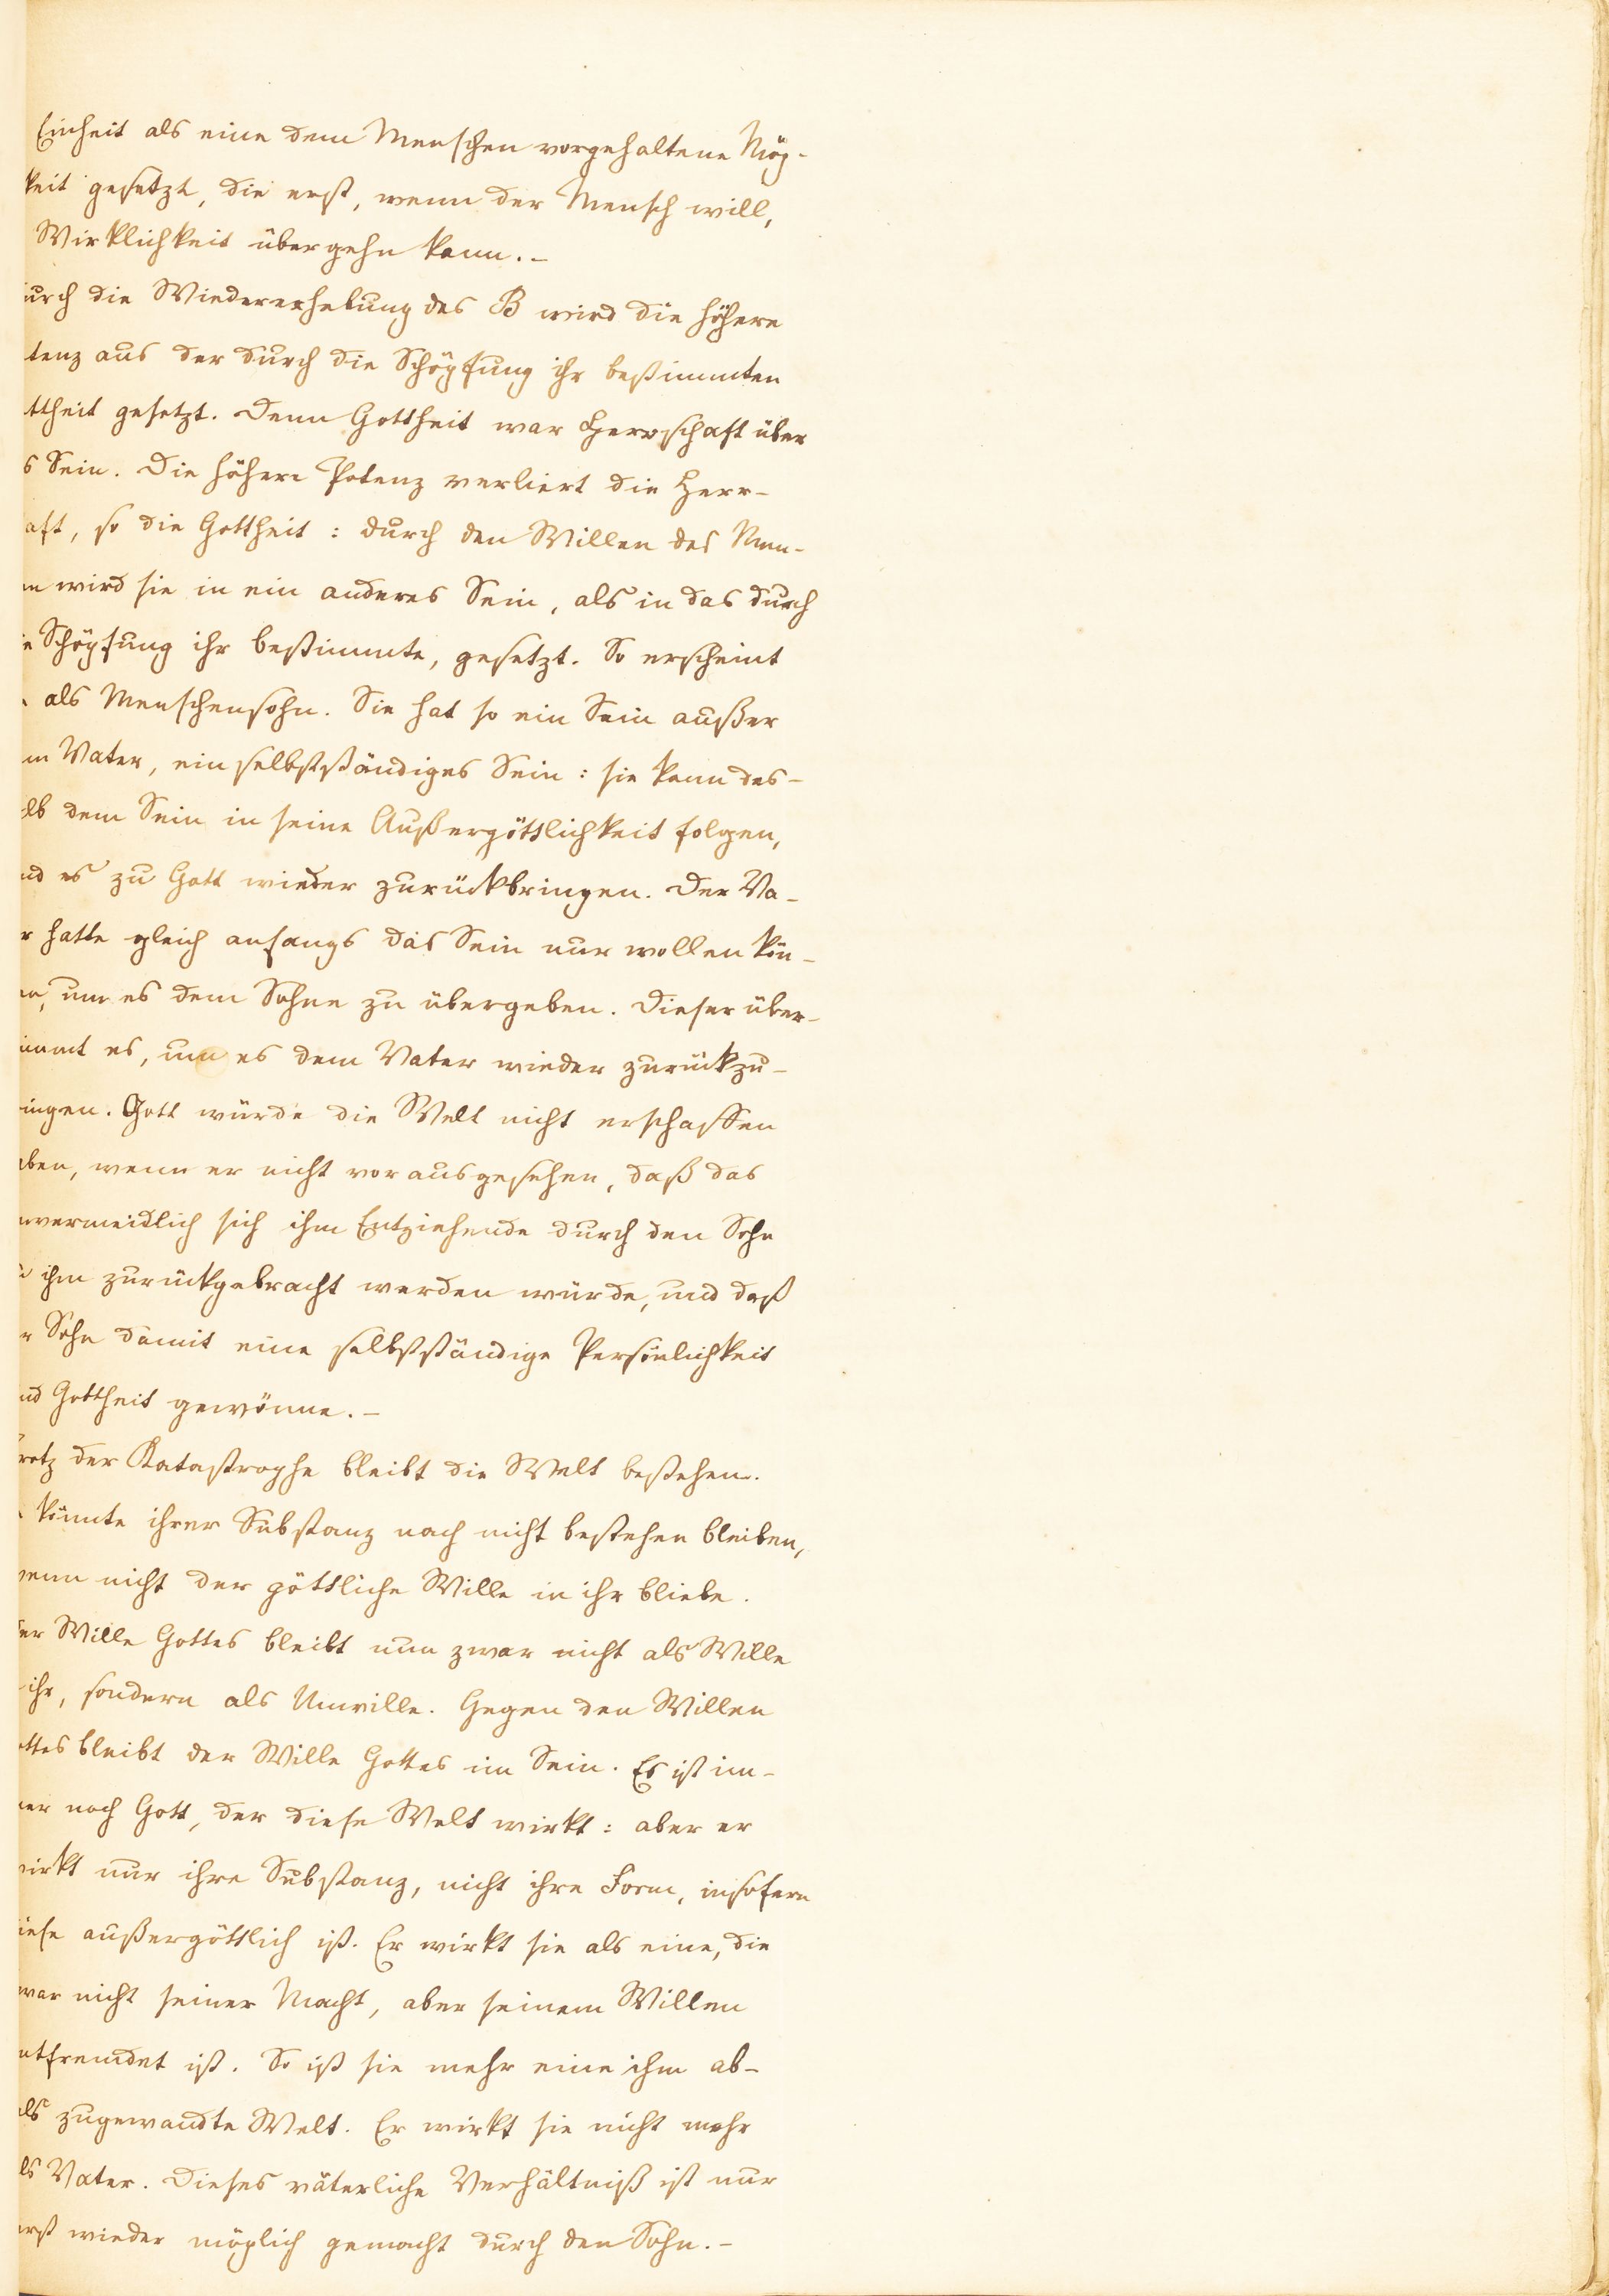 Einheit als eine dem Menschen vorgehaltene Mög-
keit gesetzt, die erst, wenn der Mensch will,
Wirklichkeit übergehn kann. –
urch die Wiedererhebung des B wird die höhere
tenz aus der durch die Schöpfung ihr bestimmten
ttheit gesetzt. Denn Gottheit war Herrschaft über
s Sein. Die höhere Potenz verliert die Herr-
aft, so die Gottheit: durch den Willen des Men-
n wird sie in ein anderes Sein, als in das durch
e Schöpfung ihr bestimmte, gesetzt. So erscheint
als Menschensohn. Sie hat so ein Sein außer
m Vater, ein selbstständiges Sein: sie kann des-
lb dem Sein in seine Außergöttlichkeit folgen,
nd es zu Gott wieder zurückbringen. Der Va-
r hatte gleich anfangs das Sein nur wollen kön-
en, um es dem Sohne zu übergeben. Dieser über-
immt es, um es dem Vater wieder zurückzu-
ingen. Gott würde die Welt nicht erschaffen
ben, wenn er nicht vorausgesehen, daß das
nvermeidlich sich ihm Entziehende durch den Sohn
u ihm zurückgebracht werden würde, und daß
r Sohn damit eine selbstständige Persönlichkeit
nd Gottheit gewönne. –
rotz der Katastrophe bleibt die Welt bestehen.
könnte ihrer Substanz nach nicht bestehen bleiben,
enn nicht der göttliche Wille in ihr bliebe.
er Wille Gottes bleibt nun zwar nicht als Wille
ihr, sondern als Unwille. Gegen den Willen
ottes bleibt der Wille Gottes im Sein. Es ist im-
er noch Gott, der diese Welt wirkt: aber er
irkt nur ihre Substanz, nicht ihre Form, insofern
iese außergöttlich ist. Er wirkt sie als eine, die
war nicht seiner Macht, aber seinem Willen
ntfremdet ist. So ist sie mehr eine ihm ab-
ls zugewandte Welt. Er wirkt sie nicht mehr
ls Vater. Dieses väterliche Verhältniß ist nur
rst wieder möglich gemacht durch den Sohn. –